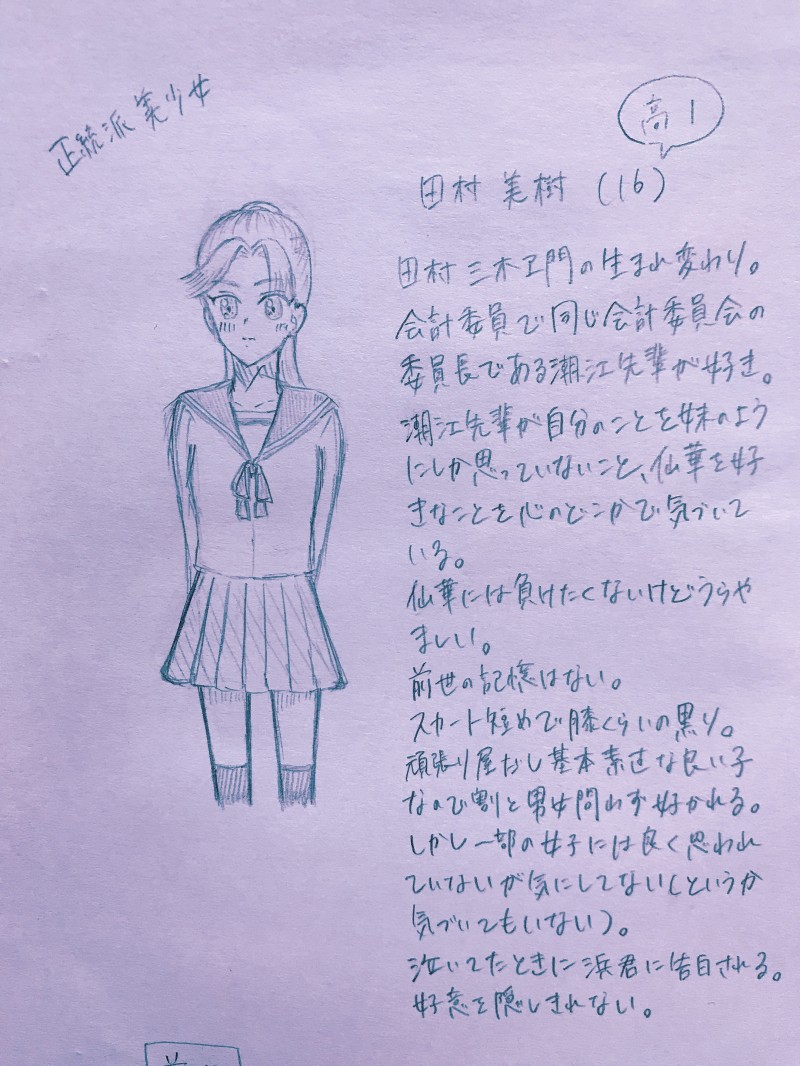 正統派美少女
高1
田村美樹(16)
田村三木ヱ門の生まれ変わり。
会計委員で同じ会計委員会の
委員長である潮江先輩が好き。
潮江先輩が自分のことを妹のよう
にしか思っていないこと、仙華を好
きなことを心のどこかで気づいて
いる。
仙華には負けたくないけどうらや
ましい。
前世の記憶はない。
スカート短めで膝くらいの黒り。
頑張り屋だし基本素直な良い子
なので割と男女問わず好かれる。
しかし一部の女子には良く思われ
ていないが気にしてない(というか
気づいてもいない)。
泣いてたときに浜君に告白される。
好意を隠しきれない。